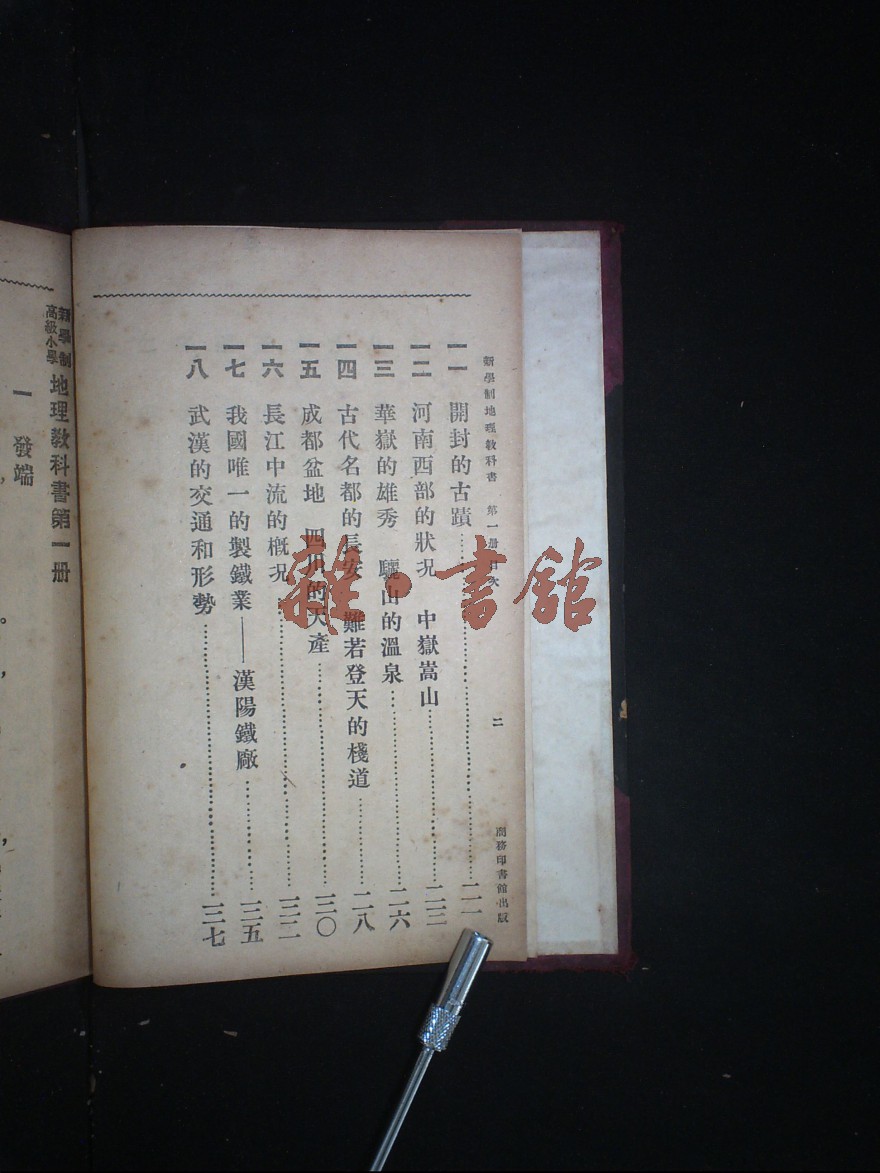 新學制地理教科書 第一册目次 二 商務印書館出版
一一 開封的古蹟……二一
一二 河南西部的狀況 中嶽嵩山……二三
一三 華嶽的雄秀 驪山的溫泉……二六
一四 古代名都的長安 難若登天的棧道……二八
一五 成都盆地 四川的天產……三〇
一六 長江中流的槪況……三二
一七 我國唯一的製鐵業——漢陽鐵廠……三五
一八 武漢的交通和形勢……三七
新學制
高級小學
地理教科書第一册
一 發端
雜·書館